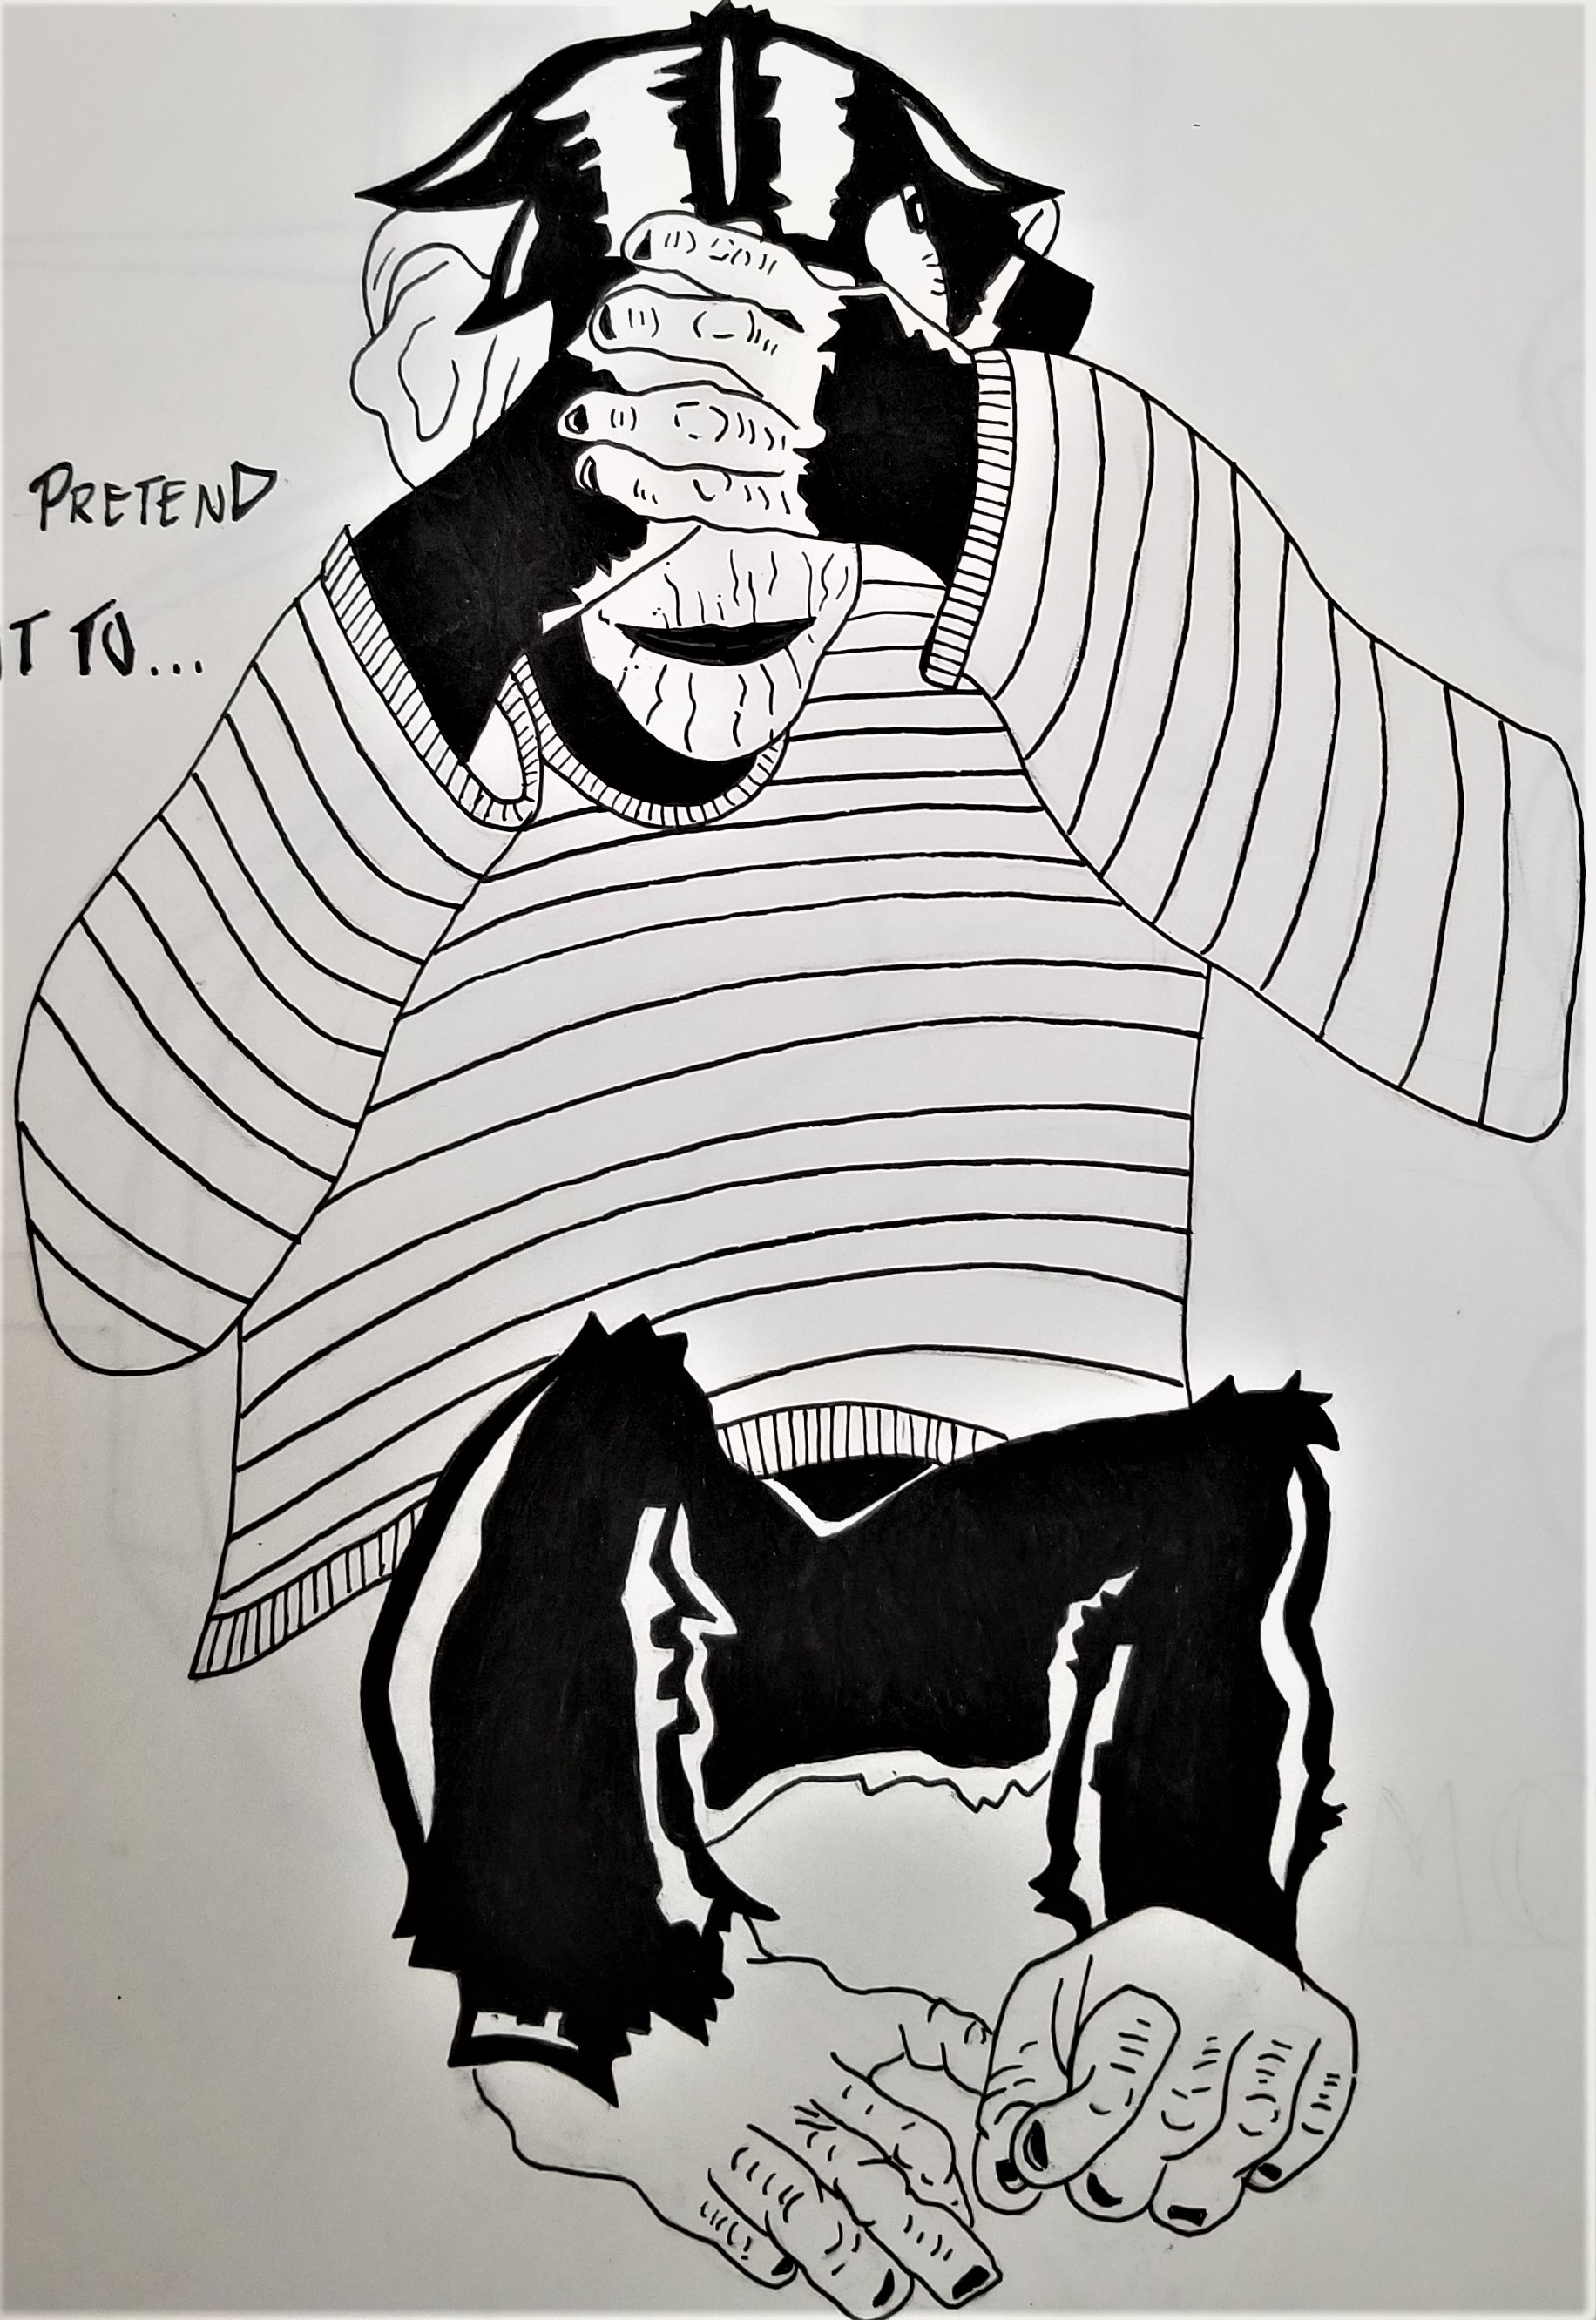 PRETEND
T TO...